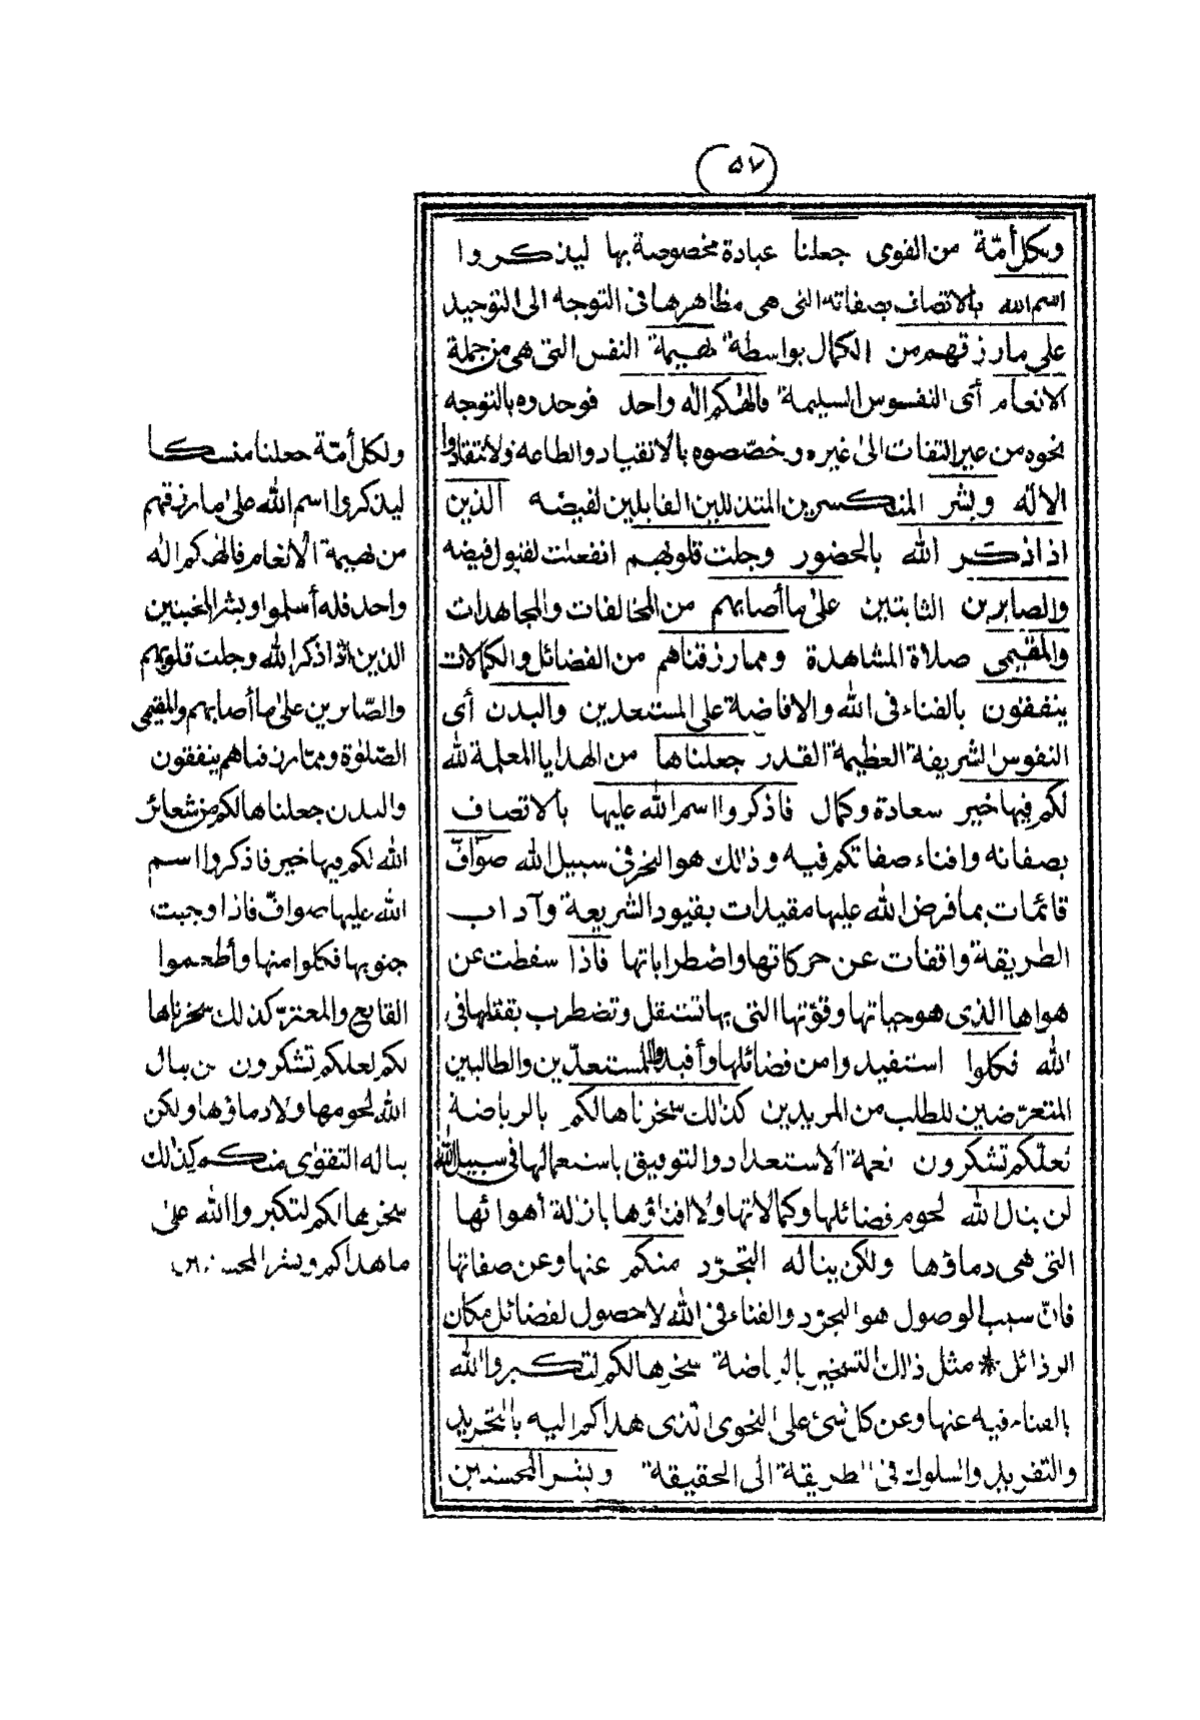 (٥٧)
ولكل أمّة من القوى جعلنا عبادة مخصوصة بها ليذكروا
اسم الله بالاتصاف بصفاته التى هى مظاهرها فى التوجه الى التوحيد
على مارزقهم من الكمال بواسطة بهيمة النفس التى هى من جملة
الانعام أى النفوس السليمة فالهكم اله واحد فوحدوه بالتوجه
نحوه من غير التفات الى غيره وخصّصوه بالانقياد والطاعة ولا تنقادوا
الا له وبشر المنكسرين المتذللين القابلين لفيضه الذين
اذا ذكر الله بالحضور وجلت قلوبهم انفعلت لقبول فيضه
والصابرين الثابتين على ما أصابهم من المخالفات والمجاهدات
والمقيمى صلاة المشاهدة ومما رزقناهم من الفضائل والكمالات
ينفقون بالفناء فى الله والافاضة على المستعدين والبدن أى
النفوس الشريفة العظيمة القدر جعلناها من الهدايا المعلمة لله
لكم فيها خير سعادة وكمال فاذكروا اسم الله عليها بالاتصاف
بصفاته وافناء صفاتكم فيه وذلك هو النحر فى سبيل الله صوافّ
قائمات بما فرض الله عليها مقيدات بقيود الشريعة وآداب
الطريقة واقفات عن حركاتها واضطراباتها فاذا سقطت عن
هواها الذى هو حياتها وقوّتها التى بها تستقل وتضطرب بقتلها فى
الله فكلوا استفيدوا من فضائلها وأفيدوا المستعدّين والطالبين
المتعرّضين للطلب من المريدين كذلك سخرناها لكم بالرياضة
لعلّكم تشكرون نعمة الاستعداد والتوفيق باستعمالها فى سبيل الله
لن ينال الله لحوم فضائلها وكمالاتها ولا افناؤها بازالة أهوائها
التى هى دماؤها ولكن يناله التجرّد منكم عنها وعن صفاتها
فانّ سبب الوصول هو التجرّد والفناء فى الله لا حصول الفضائل مكان
الرذائل * مثل ذلك التسخير بالرياضة سخرها لكم لتكبروا الله
بالفناء فيه عنها وعن كل شئ على النحو الذى هداكم اليه بالتجريد
والتفريد والسلوك فى الطريقة الى الحقيقة وبشر المحسنين
ولكل أمّة جعلنا منسكا
ليذكروا اسم الله على ما رزقهم
من بهيمة الأنعام فالهكم اله
واحد فله أسلموا وبشر المخبتين
الذين اذا ذكر الله وجلت قلوبهم
والصّابرين على ما أصابهم والمقيمى
الصّلوة وممّا رزقناهم ينفقون
والبدن جعلناها لكم من شعائر
الله لكم فيها خير فاذكروا اسم
الله عليها صوافّ فاذا وجبت
جنوبها فكلوا منها وأطعموا
القانع والمعترّ كذلك سخرناها
لكم لعلكم تشكرون لن ينال
الله لحومها ولا دماؤها ولكن
يناله التقوى منكم كذلك
سخرها لكم لتكبروا الله على
ما هداكم وبشر المحسنين